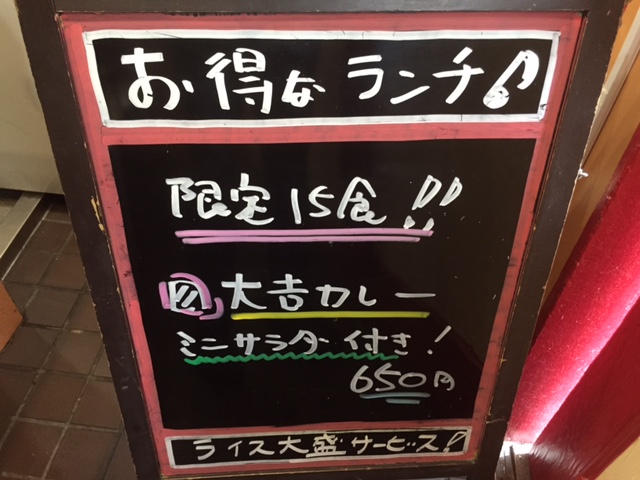 お得なランチ♪
限定15食!!
大吉カレー
ミニサラダ付き!
650円
ライス大盛サービス!